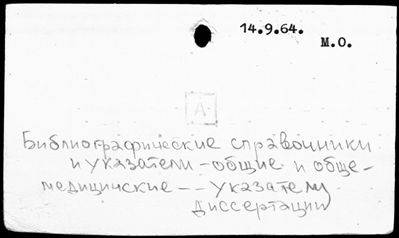 14.9.64.
М.О.
А
Библиографические справочники
и указатели - общие и обще-
медицинские -- указатели
диссертации